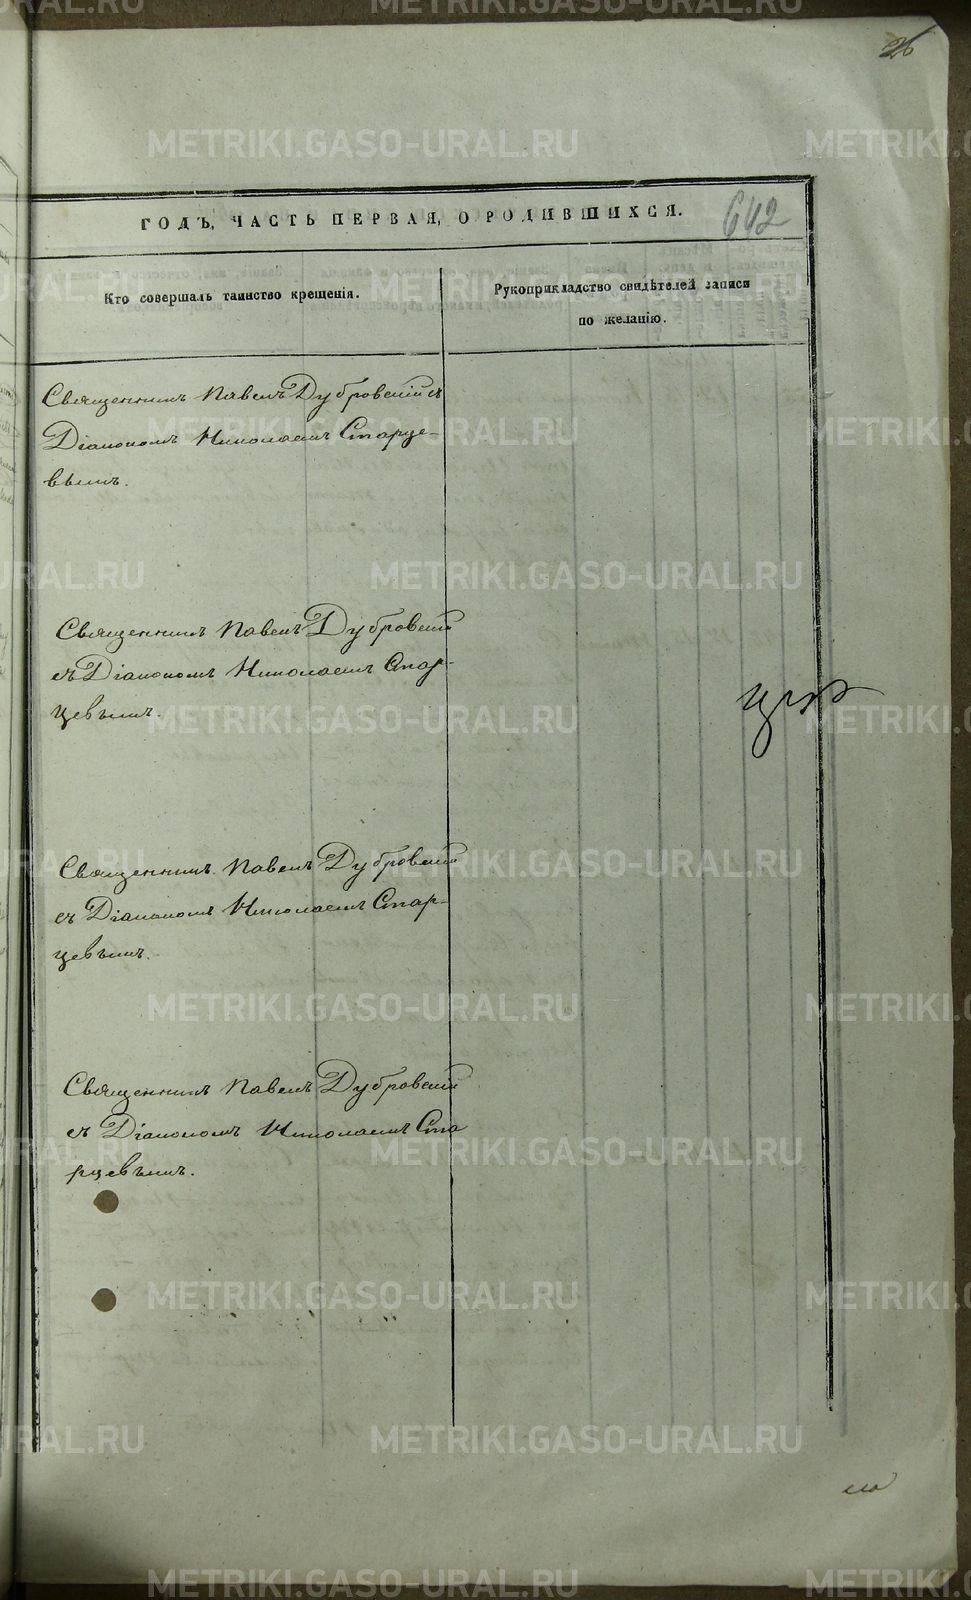 26
ГОДЪ, ЧАСТЬ ПЕРВАЯ, О РОДИВШИХСЯ.
642
Кто совершалъ таинство крещенія.
Рукоприкладство свидѣтелей записи
по желанію.
Священникъ Павелъ Дубровскій съ
Діакономъ Николаемъ Старце-
вымъ.
Священникъ Павелъ Дубровскій
съ Діакономъ Николаемъ Стар-
цевымъ.
Священникъ Павелъ Дубровскій
съ Діакономъ Николаемъ Стар-
цевымъ.
Священникъ Павелъ Дубровскій
съ Діакономъ Николаемъ Ста
рцевымъ.
METRIKI.GASO-URAL.RU